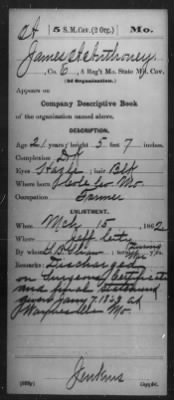 A | 5 S.M. Cav. (2 Org.) | Mo.
James A Anthoney
, Co. C, 5 Reg't Mo. State M. Cav.
(2d Organization.)
Appears on
Company Descriptive Book
of the organization named above.
DESCRIPTION.
Age 21 years; height 5 feet 7 inches.
Complexion Dk
Eyes Hazle; hair Blk
Where born Cole Co Mo.
Occupation Farmer
ENLISTMENT.
When Mch 15, 1862
Where Jeff City
By whom
Remarks: Discharged
on Surgeons Certificate
and final statement
given Jany 7. 1863 at
Waynesville Mo.
Jenkins
Copyist.